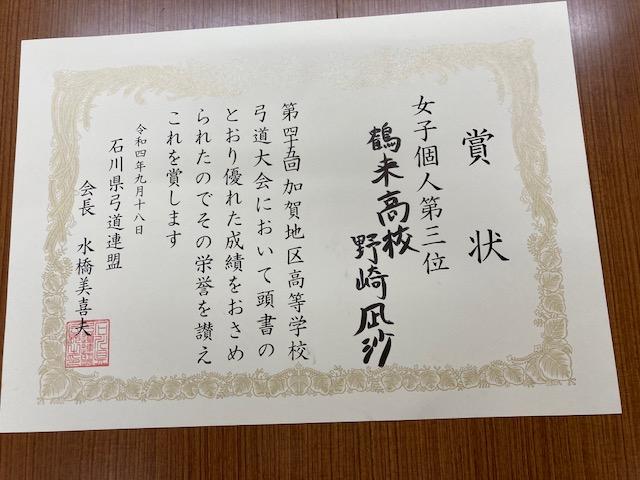 賞状
女子個人第三位
鶴来高校
野崎凪沙
第四十五回加賀地区高等学校
弓道大会において頭書の
とおり優れた成績をおさめ
られたのでその栄誉を讃え
これを賞します
令和四年九月十八日
石川県弓道連盟
会長 水橋美喜夫